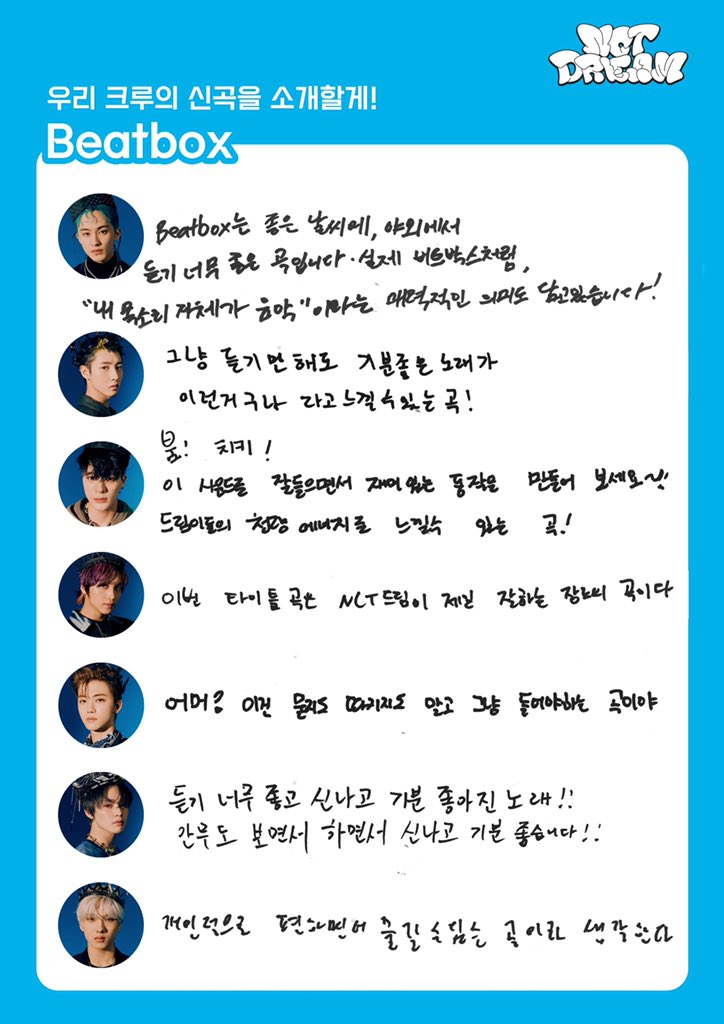 NCT
DREAM
우리 크루의 신곡을 소개할게!
Beatbox
Beatbox는 좋은 날씨에, 야외에서
듣기 너무 좋은 곡입니다. 실제 비트박스처럼,
"내 목소리 자체가 음악"이라는 매력적인 의미도 담고있습니다!
그냥 듣기만 해도 기분좋은 노래가
이런거구나 라고 느낄 수 있는 곡!
붐! 치키!
이 사운드를 잘들으면서 재미있는 동작을 만들어 보세요~
드림이들의 청량 에너지를 느낄수 있는 곡!
이번 타이틀 곡은 NCT드림이 제일 잘하는 장르의 곡이다
어머? 이건 묻지도 따지지도 말고 그냥 들어야하는 곡이야
듣기 너무 좋고 신나고 기분 좋아진 노래!!
간무도 보면서 하면서 신나고 기분 좋습니다!!
개인적으로 편하면서 즐길 수 있는 곡이라 생각한다